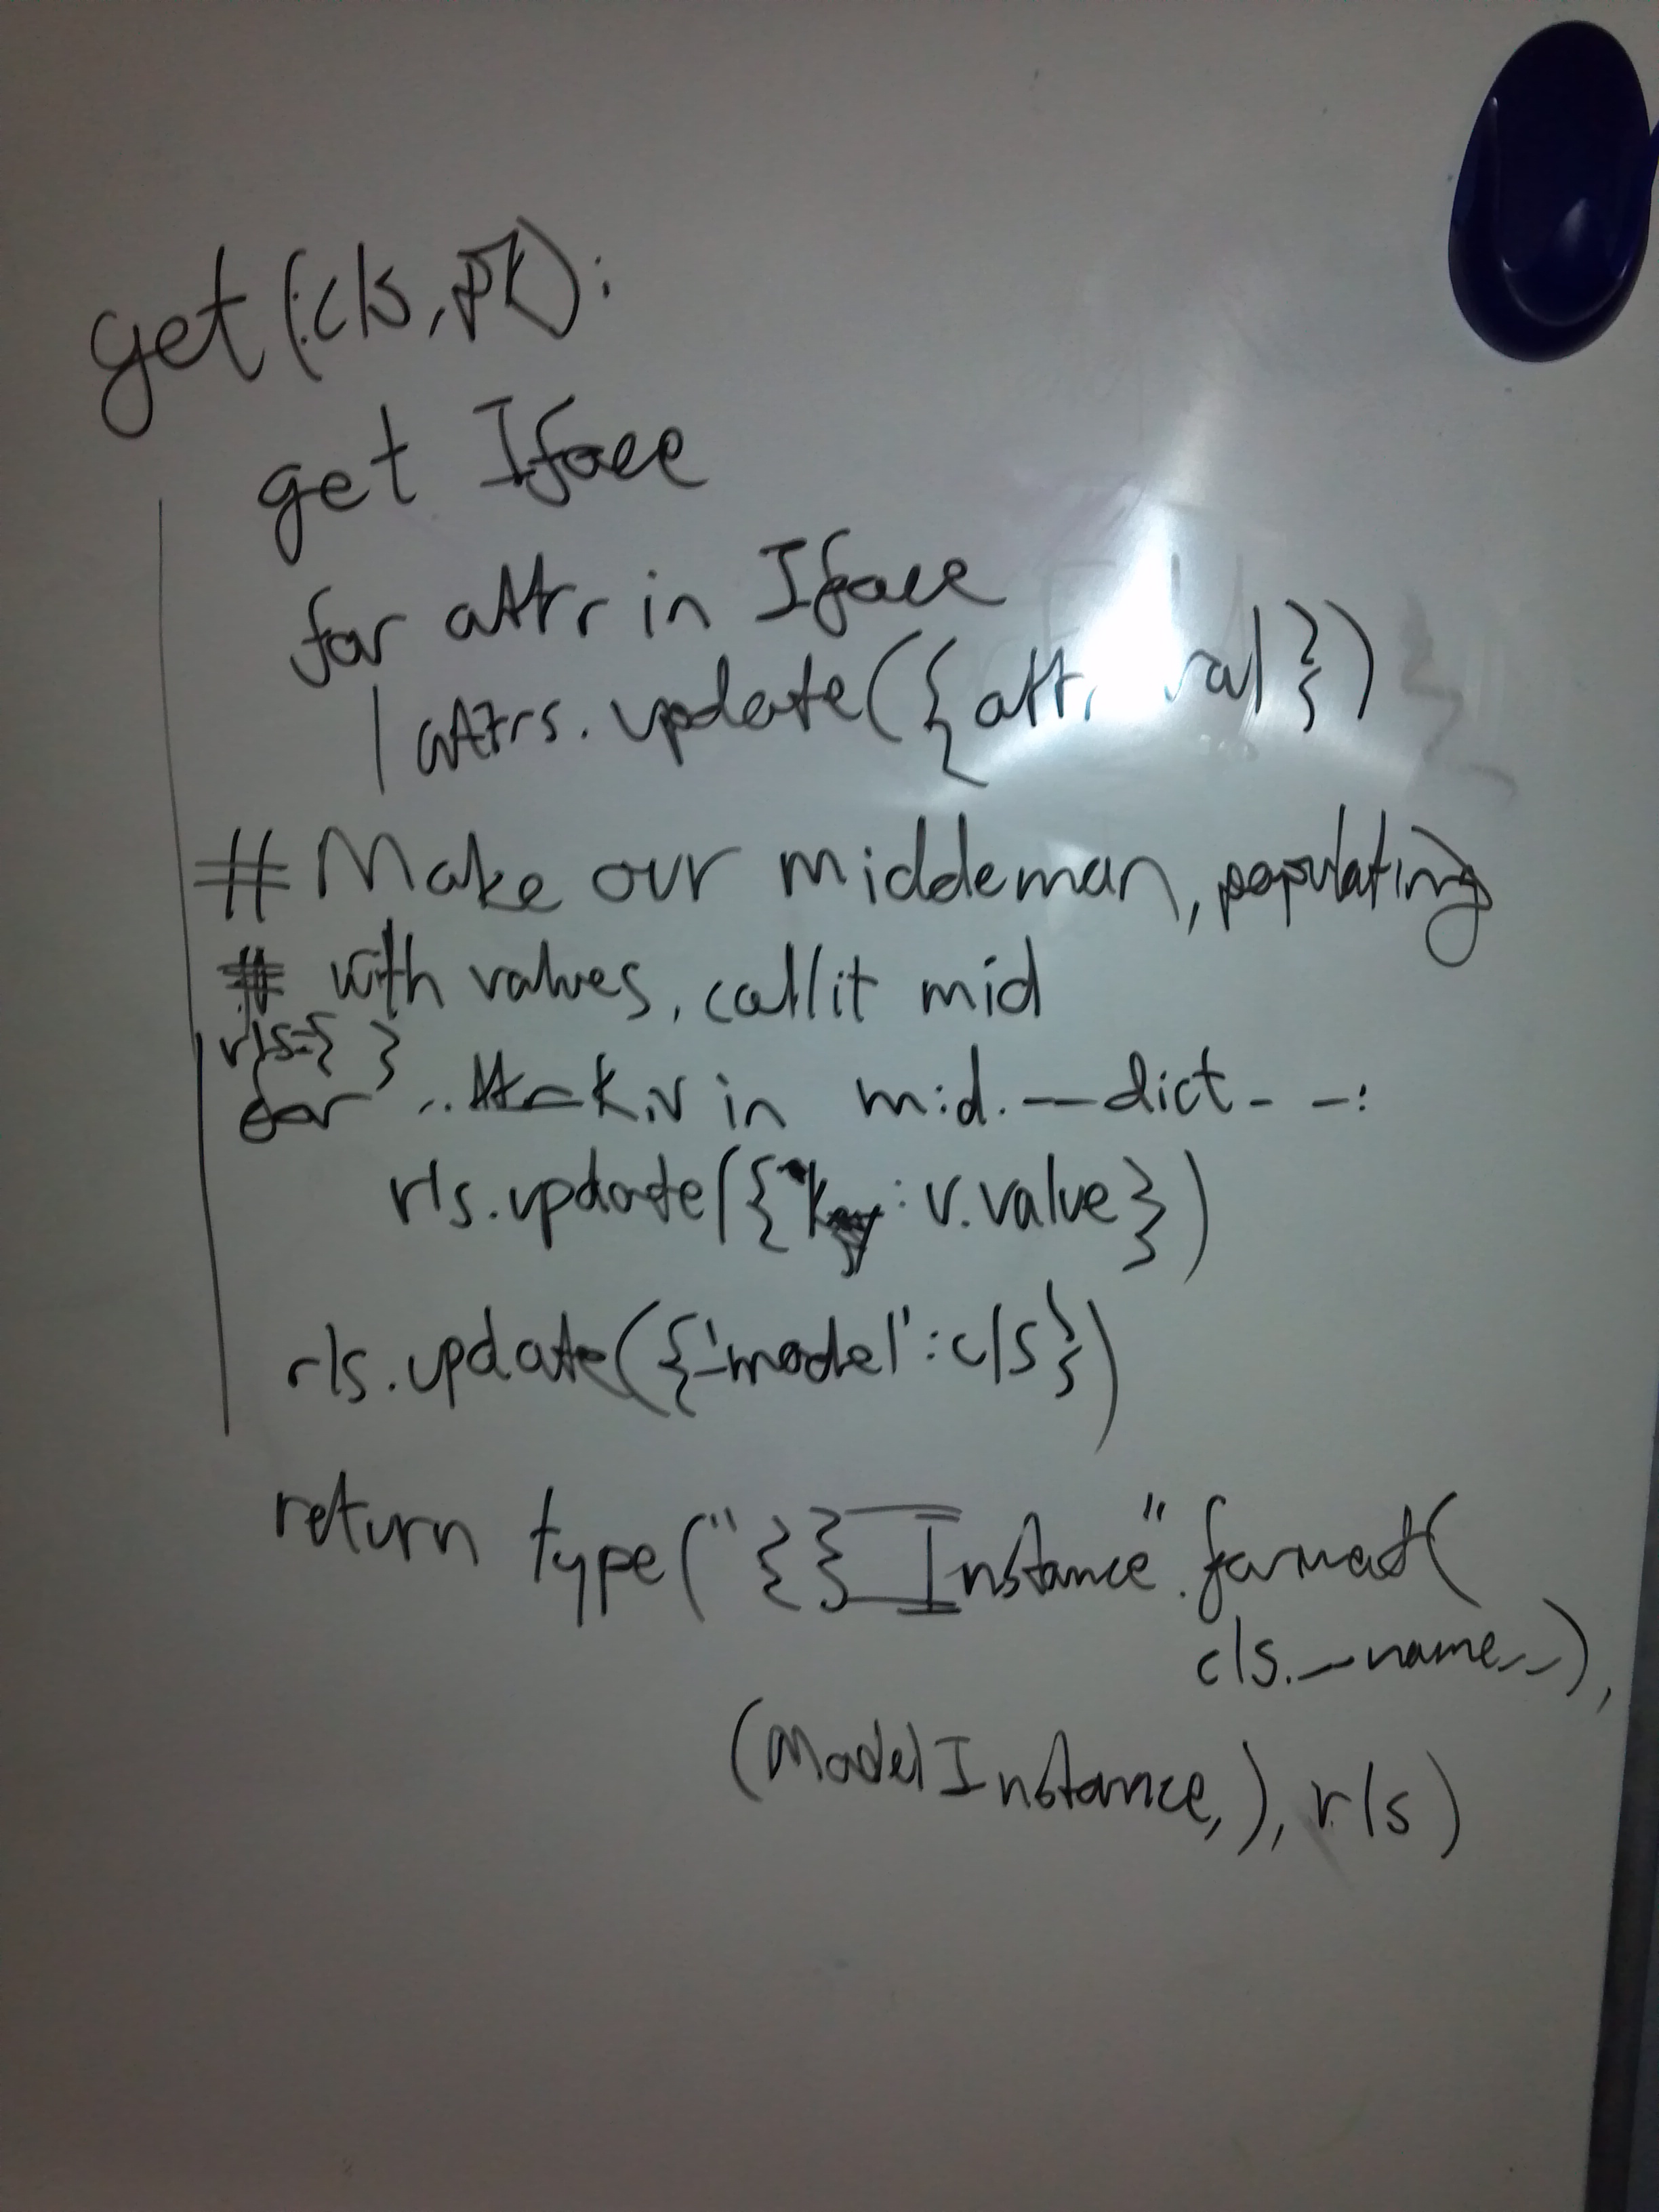 get(cls, pk):
get Iface
for attr in Iface
attrs.update({attr val})
# Make our middeman, populating
# with values, call it mid
rls={ }
for k,v in mid.__dict__:
rls.update({k: v.value})
rls.update({'model':cls})
return type("{}_Instance".format(
cls.__name__),
(ModelInstance,), rls)